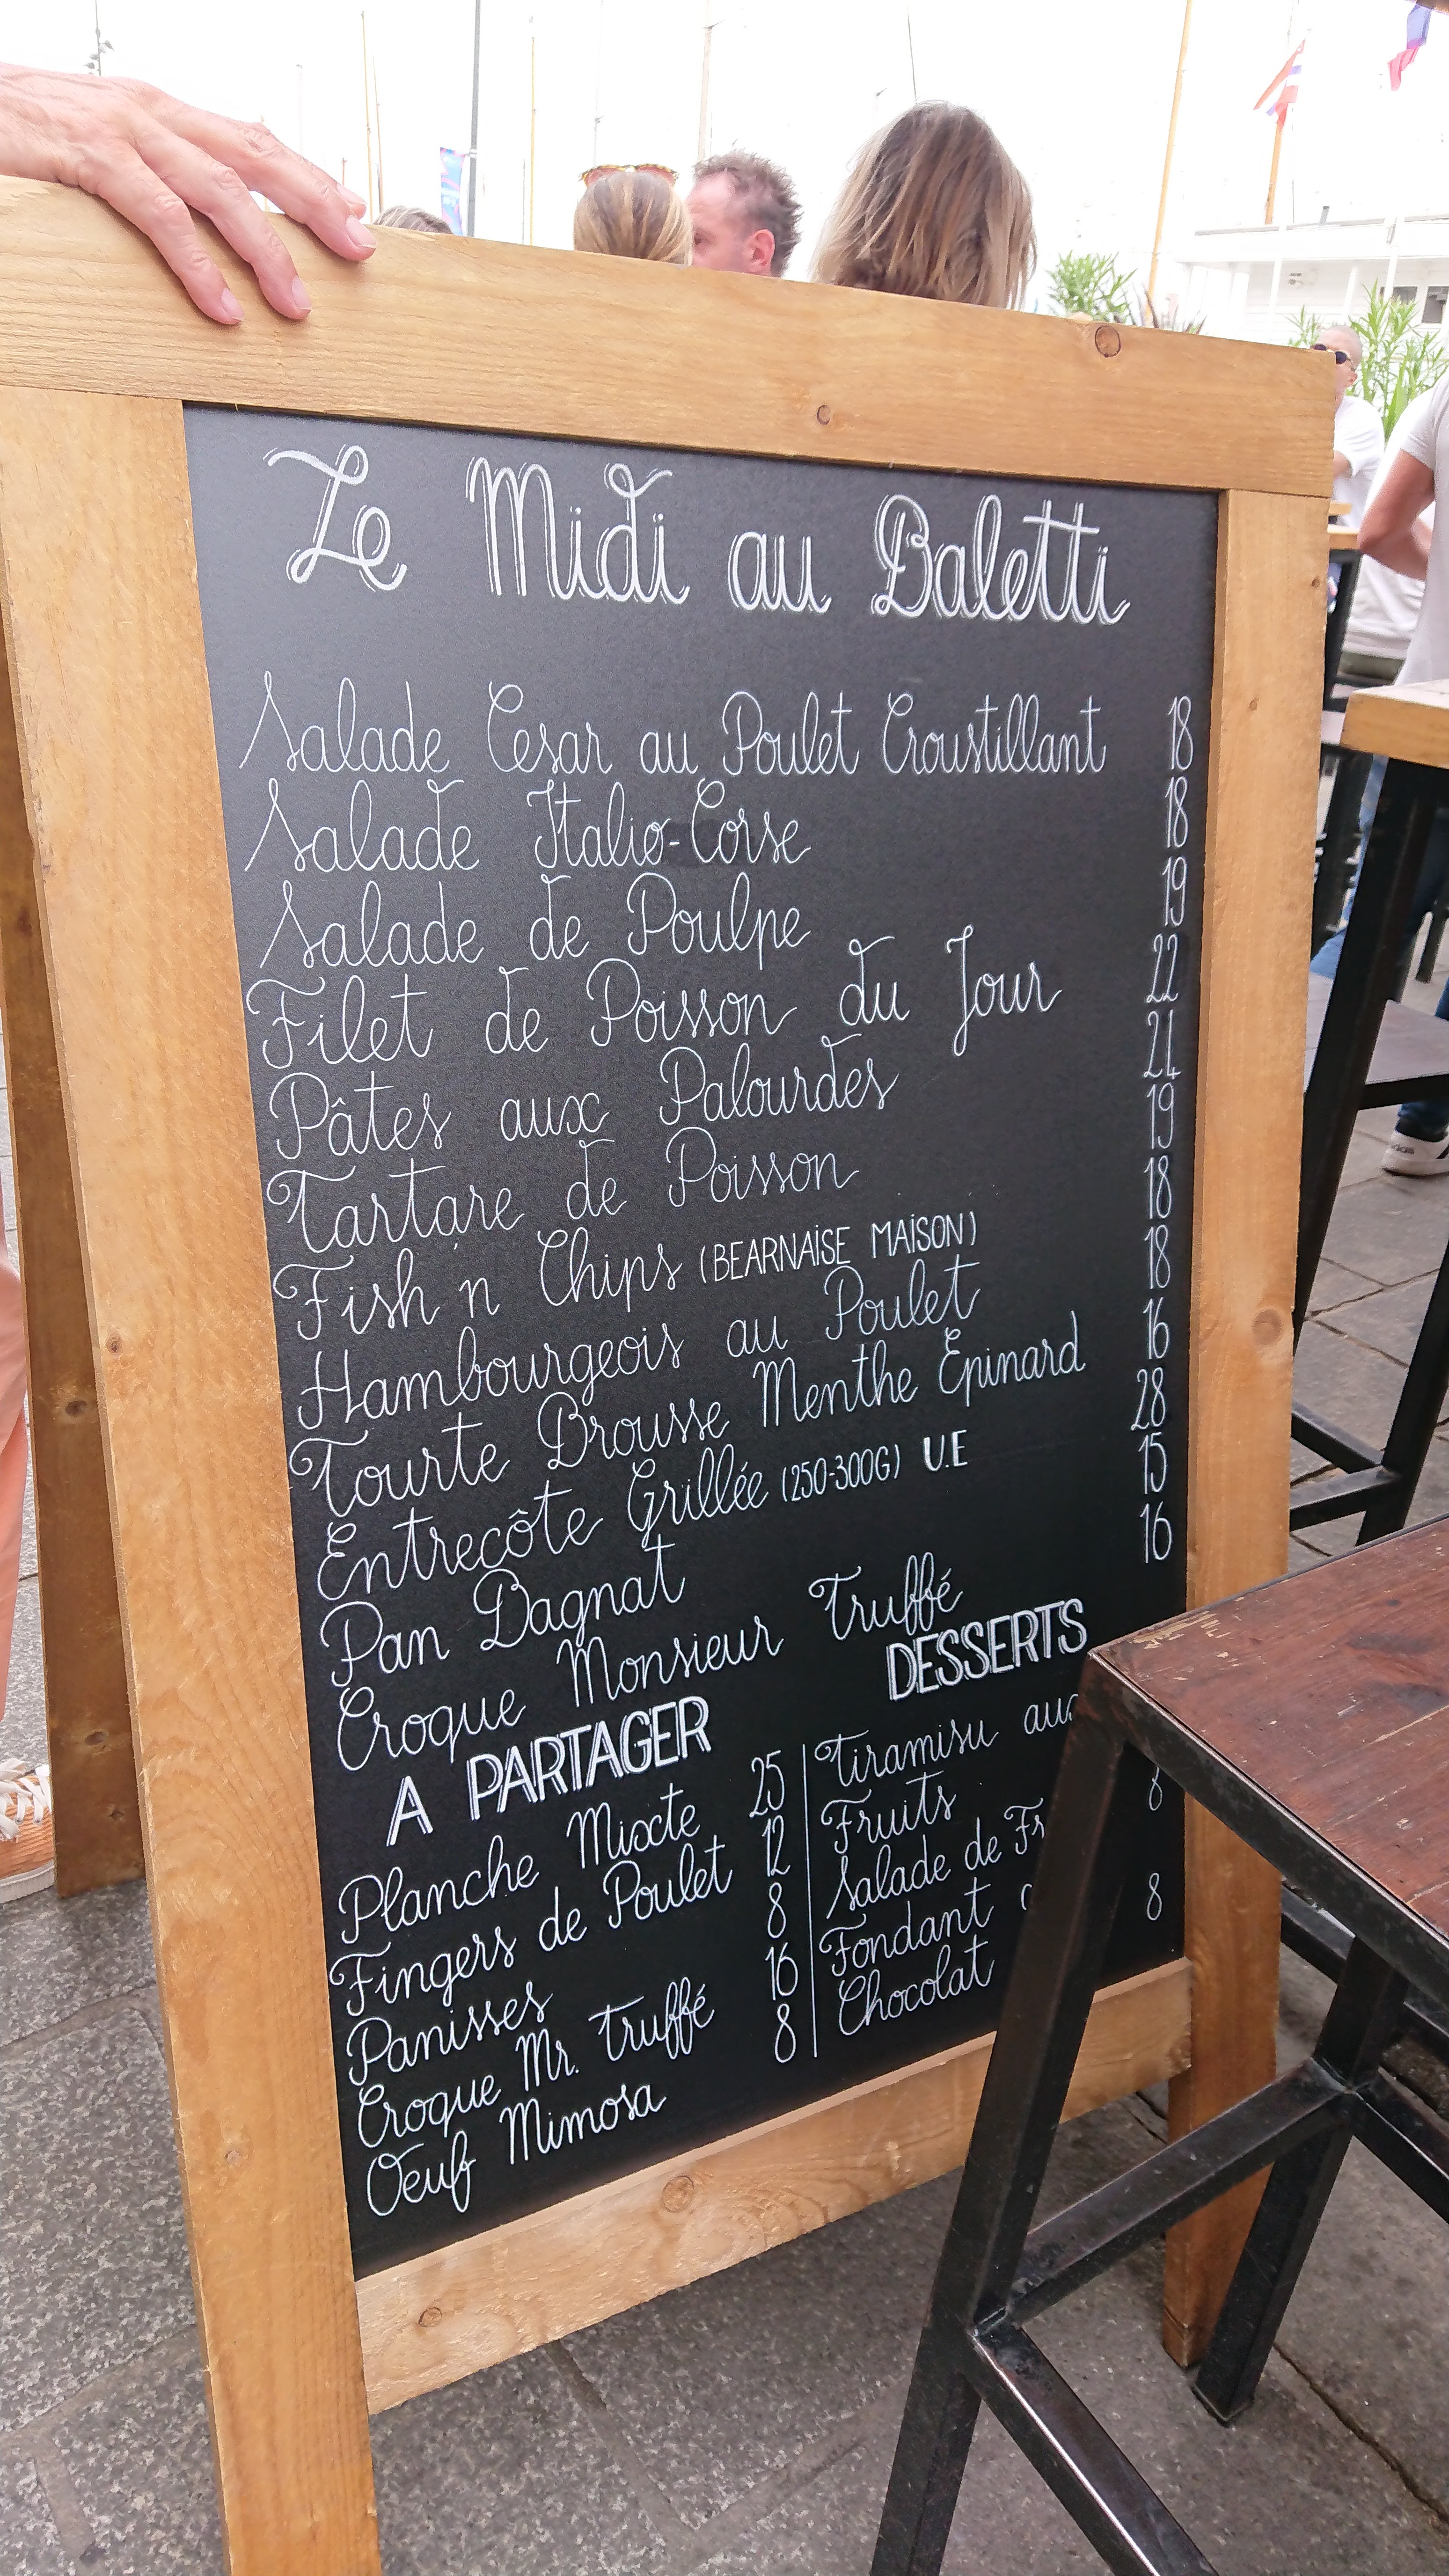 Le Midi au Baletti
Salade Cesar au Poulet Croustillant 18
Salade Italio-Corse 18
Salade de Poulpe 19
Filet de Poisson du Jour 22
Pâtes aux Palourdes 21
Tartare de Poisson 19
Fish n Chips (BEARNAISE MAISON) 18
Hambourgeois au Poulet 18
Tourte Brousse Menthe Epinard 16
Entrecôte Grillée (250-300G) U.E 28
Pan Bagnat 15
Croque Monsieur Truffé 16
A PARTAGER
Planche Mixte 25
Fingers de Poulet 12
Panisses 8
Croque Mr. Truffé 16
Oeuf Mimosa 8
DESSERTS
Tiramisu
Fruits 8
Salade de
Fondant
Chocolat 8
adidas